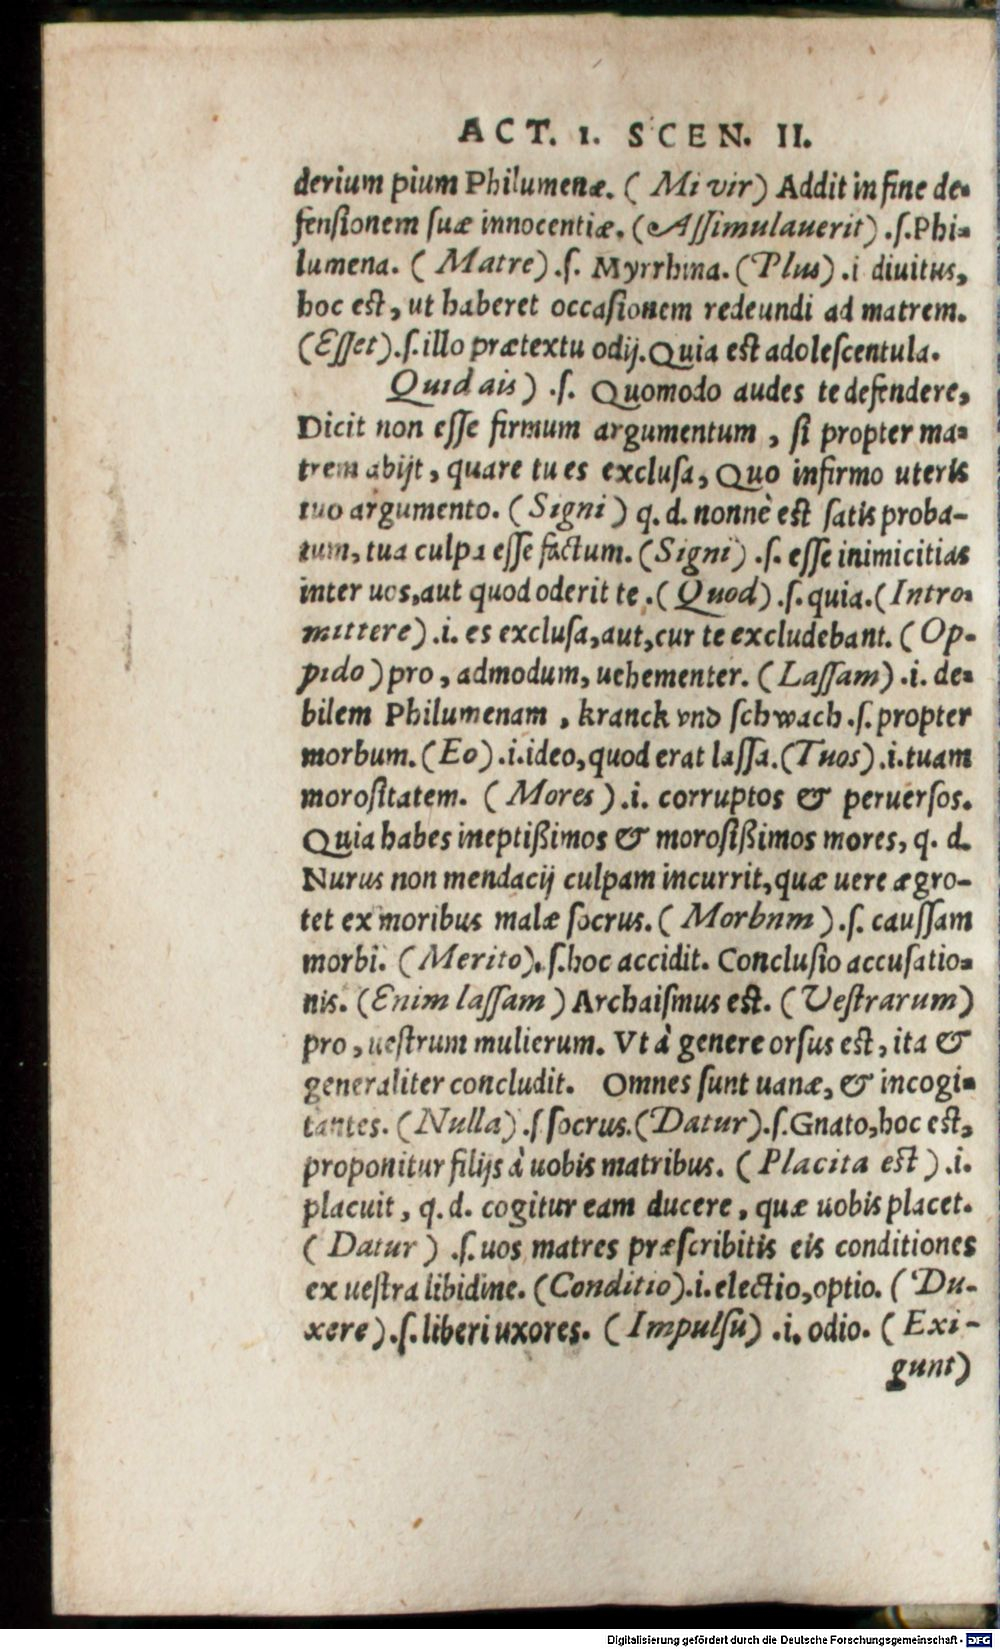 ACT. 1. SCEN. II.
derium pium Philumenæ. ( Mi vir) Addit in fine de-
fensionem suæ innocentiæ. (Assimulauerit) .s.Phi-
lumena. ( Matre) .s. Myrrhina. (Plus) .i diuitus,
hoc est, ut haberet occasionem redeundi ad matrem.
(Esset).s.illo prætextu odij.Quia est adolescentula.
Quid ais) .s. Quomodo audes te defendere,
Dicit non esse firmum argumentum , si propter ma-
trem abijt, quare tu es exclusa, Quo infirmo uteris
tuo argumento. (Signi) q. d. nonnè est satis proba-
tum, tua culpa esse factum. (Signi) .s. esse inimicitias
inter uos,aut quod oderit te .( Quod) .s.quia.(Intro-
mittere) .i. es exclusa,aut,cur te excludebant. ( Op-
pido )pro , admodum, uehementer. ( Lassam) .i. de-
bilem Philumenam , kranck vnd schwach .s. propter
morbum. (Eo) .i.ideo,quod erat lassa.(Tuos).i.tuam
morositatem. ( Mores ) .i. corruptos & peruersos.
Quia habes ineptißimos & morosißimos mores, q. d.
Nurus non mendacij culpam incurrit,quæ uere ægro-
tet ex moribus malæ socrus. ( Morbnm ) .s. caussam
morbi. (Merito). s.hoc accidit. Conclusio accusatio-
nis. (Enim lassam ) Archaismus est. ( Vestrarum)
pro , uestrum mulierum. Vt à genere orsus est, ita &
generaliter concludit. Omnes sunt uanæ, & incogi-
tantes. (Nulla) .s socrus.(Datur).s.Gnato,hoc est,
proponitur filijs à uobis matribus. ( Placita est ) .i.
placuit, q. d. cogitur eam ducere , quæ uobis placet.
( Datur ) .s. uos matres præscribitis eis conditiones
ex uestra libidine. (Conditio).i.electio,optio. ( Du-
xere).s.liberi uxores. ( Impulsu) .i. odio. ( Exi-
gunt)
Digitalisierung gefördert durch die Deutsche Forschungsgemeinschaft - DFG